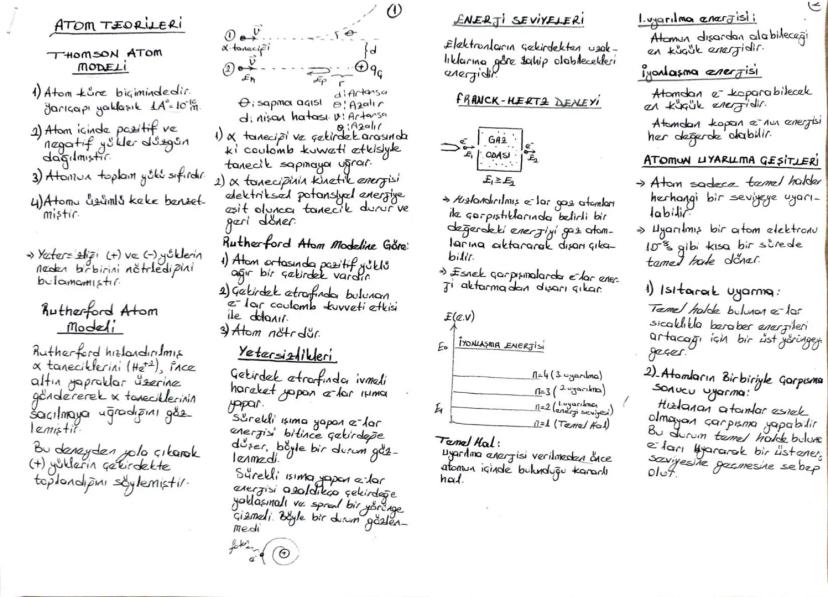 ATOM TEORİLERİ
THOMSON ATOM
MODELİ
1) Atom küre biçimindedir.
yarıçapı yaklaşık 1A°=10⁻¹⁰m.
2) Atom içinde pozitif ve
negatif yükler düzgün
dağılmıştır.
3) Atomun toplam yükü sıfırdır
4) Atomu üzümlü keke benzet-
miştir.
→ Yetersizliği (+) ve (-) yüklerin
neden birbirini nötrlediğini
bulamamıştır.
Rutherford Atom
Modeli
Rutherford hızlandırılmış
α taneciklerini (He⁺²), ince
altın yapraklar üzerine
göndererek α taneciklerinin
saçılmaya uğradığını göz-
lemiştir.
Bu deneyden yola çıkarak
(+) yüklerin çekirdekte
toplandığını söylemiştir.
1
① V
α taneciği
θ
d
② Ek
Ep
r
qç
d: Artarsa
θ: sapma açısı θ: Azalır
d: nişan hatası V: Artarsa
θ: Azalır
1) α taneciği ve çekirdek arasında
ki coulomb kuvveti etkisiyle
tanecik sapmaya uğrar.
2) α taneciğinin kinetik enerjisi
elektriksel potansiyel enerjiye
eşit olunca tanecik durur ve
geri döner.
Rutherford Atom Modeline Göre:
1) Atom ortasında pozitif yüklü
ağır bir çekirdek vardır.
2) Çekirdek etrafında bulunan
e⁻ lar coulomb kuvveti etkisi
ile dolanır.
3) Atom nötrdür.
Yetersizlikleri
Çekirdek etrafında ivmeli
hareket yapan e-lar ışıma
yapar.
Sürekli ışıma yapan e-lar
enerjisi bitince çekirdeğe
düşer, böyle bir durum göz-
lenmedi.
Sürekli ışıma yapan e-lar
enerjisi azaldıkça çekirdeğe
yaklaşmalı ve spral bir yörünge
çizmeli. Böyle bir durum gözlen-
medi
e
+
ENERJİ SEVİYELERİ
Elektronların çekirdekten uzak-
lıklarına göre sahip olabilecekleri
enerjidir.
FRANCK-HERTZ DENEYİ
e⁻
E₁
GAZ
ODASI
e⁻
E₂
E₁ ≥ E₂
→ Hızlandırılmış e-lar gaz atomları
ile çarpıştıklarında belirli bir
değerdeki enerjiyi gaz atom-
larına aktararak dışarı çıka-
bilir.
→ Esnek çarpışmalarda e-lar ener-
ji aktarmadan dışarı çıkar.
E(e.V)
İYONLAŞMA ENERJİSİ
n=4 (3. uyarılma)
n=3 (2. uyarılma)
n=2 (1. uyarılma
enerji seviyesi)
n=1 (Temel Hal)
Temel Hal:
Uyarılma enerjisi verilmeden önce
atomun içinde bulunduğu kararlı
hal.
2
1. uyarılma enerjisi:
Atomun dışardan alabileceği
en küçük enerjidir.
İyonlaşma enerjisi
Atomdan e⁻ koparabilecek
en küçük enerjidir.
Atomdan kopan e⁻nun enerjisi
her değerde olabilir.
ATOMUN UYARILMA ÇEŞİTLERİ
→ Atom sadece temel halden
herhangi bir seviyeye uyarı-
labilir.
→ Uyarılmış bir atom elektronu
10⁻⁸s gibi kısa bir sürede
temel hale döner.
1) Isıtarak uyarma:
Temel halde bulunan e-lar
sıcaklıkla beraber enerjileri
artacağı için bir üst yörüngeye
geçer.
2) Atomların Birbiriyle Çarpışması
sonucu uyarma:
Hızlanan atomlar esnek
olmayan çarpışma yapabilir
Bu durum temel halde bulunan
e-ları uyararak bir üst enerji
seviyesine geçmesine sebep
olur.